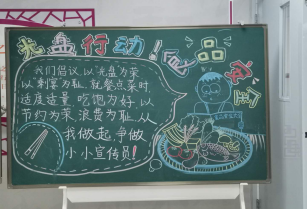 光盘行动！食品安全
我们倡议，以"光盘"为荣
以剩宴为耻，就餐点菜时
适度适量，吃饱为好，以
节约为荣，浪费为耻，从
我做起，争做
小小宣传员！